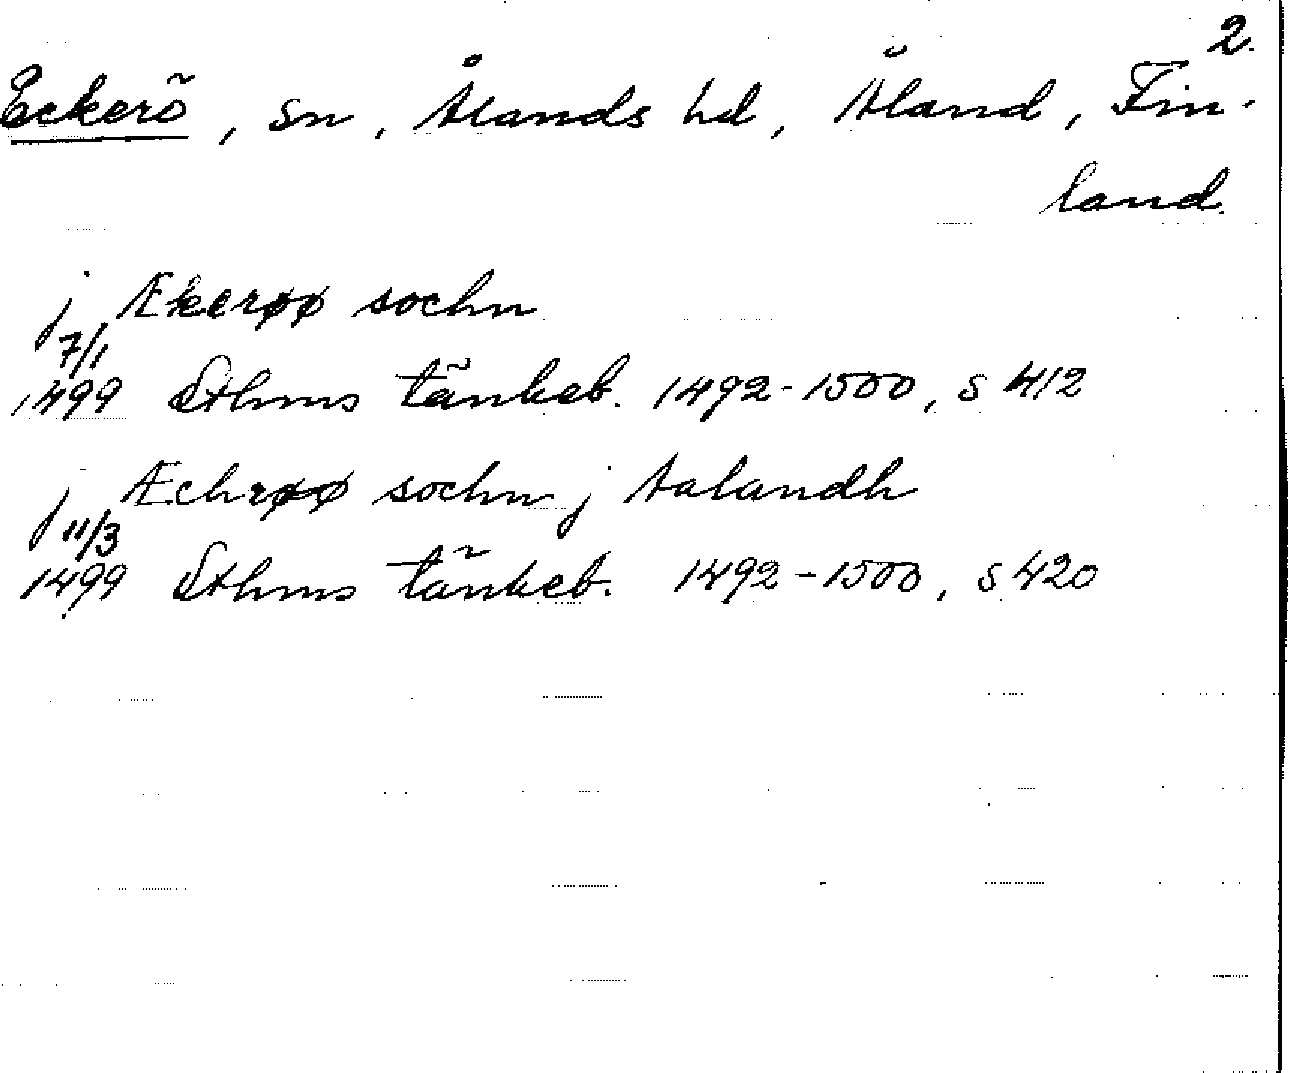 2.
Eckerö, sn, Ålands hd, Åland, Fin-
land.
j Ækerøø sochn
7/1
1499 Sthms tänkeb. 1492-1500, s 412
j Æchrøø sochn j Aalandh
11/3
1499 Sthms tänkeb. 1492-1500, s 420